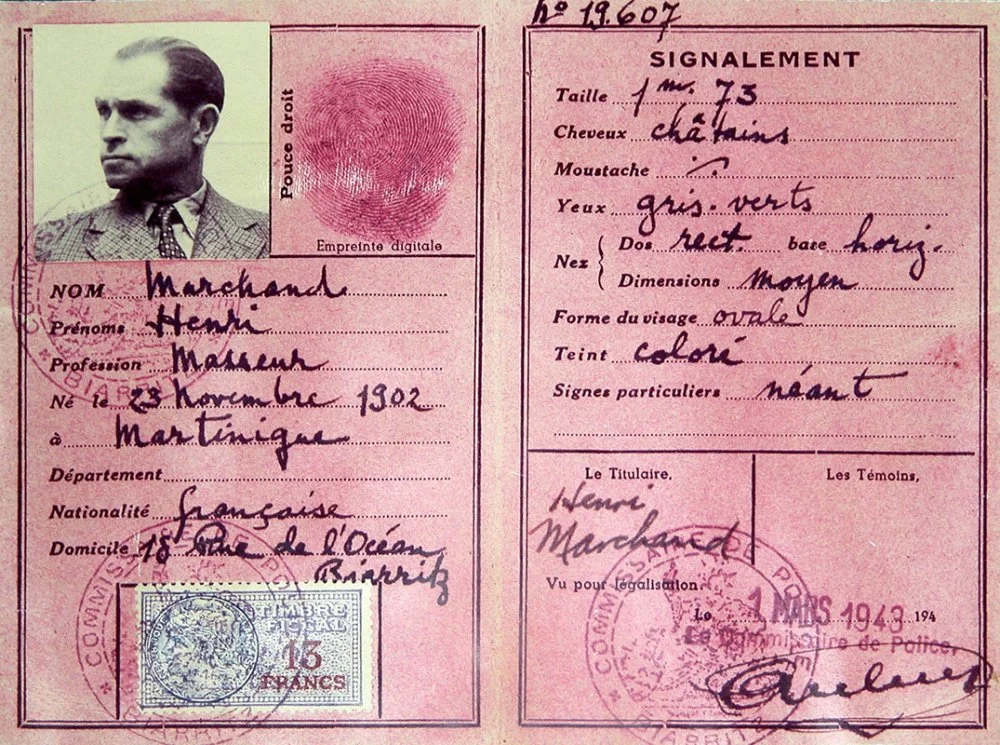 Pouce droit
Empreinte digitale
NOM Marchand
Prénoms Henri
Profession Masseur
Né le 23 Novembre 1902
à Martinique
Département
Nationalité française
Domicile 18 Rue de l'Océan
Biarritz
COMMISSARIAT DE POLICE
BIARRITZ
TIMBRE
FISCAL
13
FRANCS
nº 19.607
SIGNALEMENT
Taille 1 m. 73
Cheveux châtains
Moustache
Yeux gris. verts
Nez Dos rect. base horiz.
Dimensions moyen
Forme du visage ovale
Teint coloré
Signes particuliers néant
Le Titulaire,
Henri
Marchand
Les Témoins,
Vu pour légalisation
Le 1 MARS 1943 194
Le Commissaire de Police,